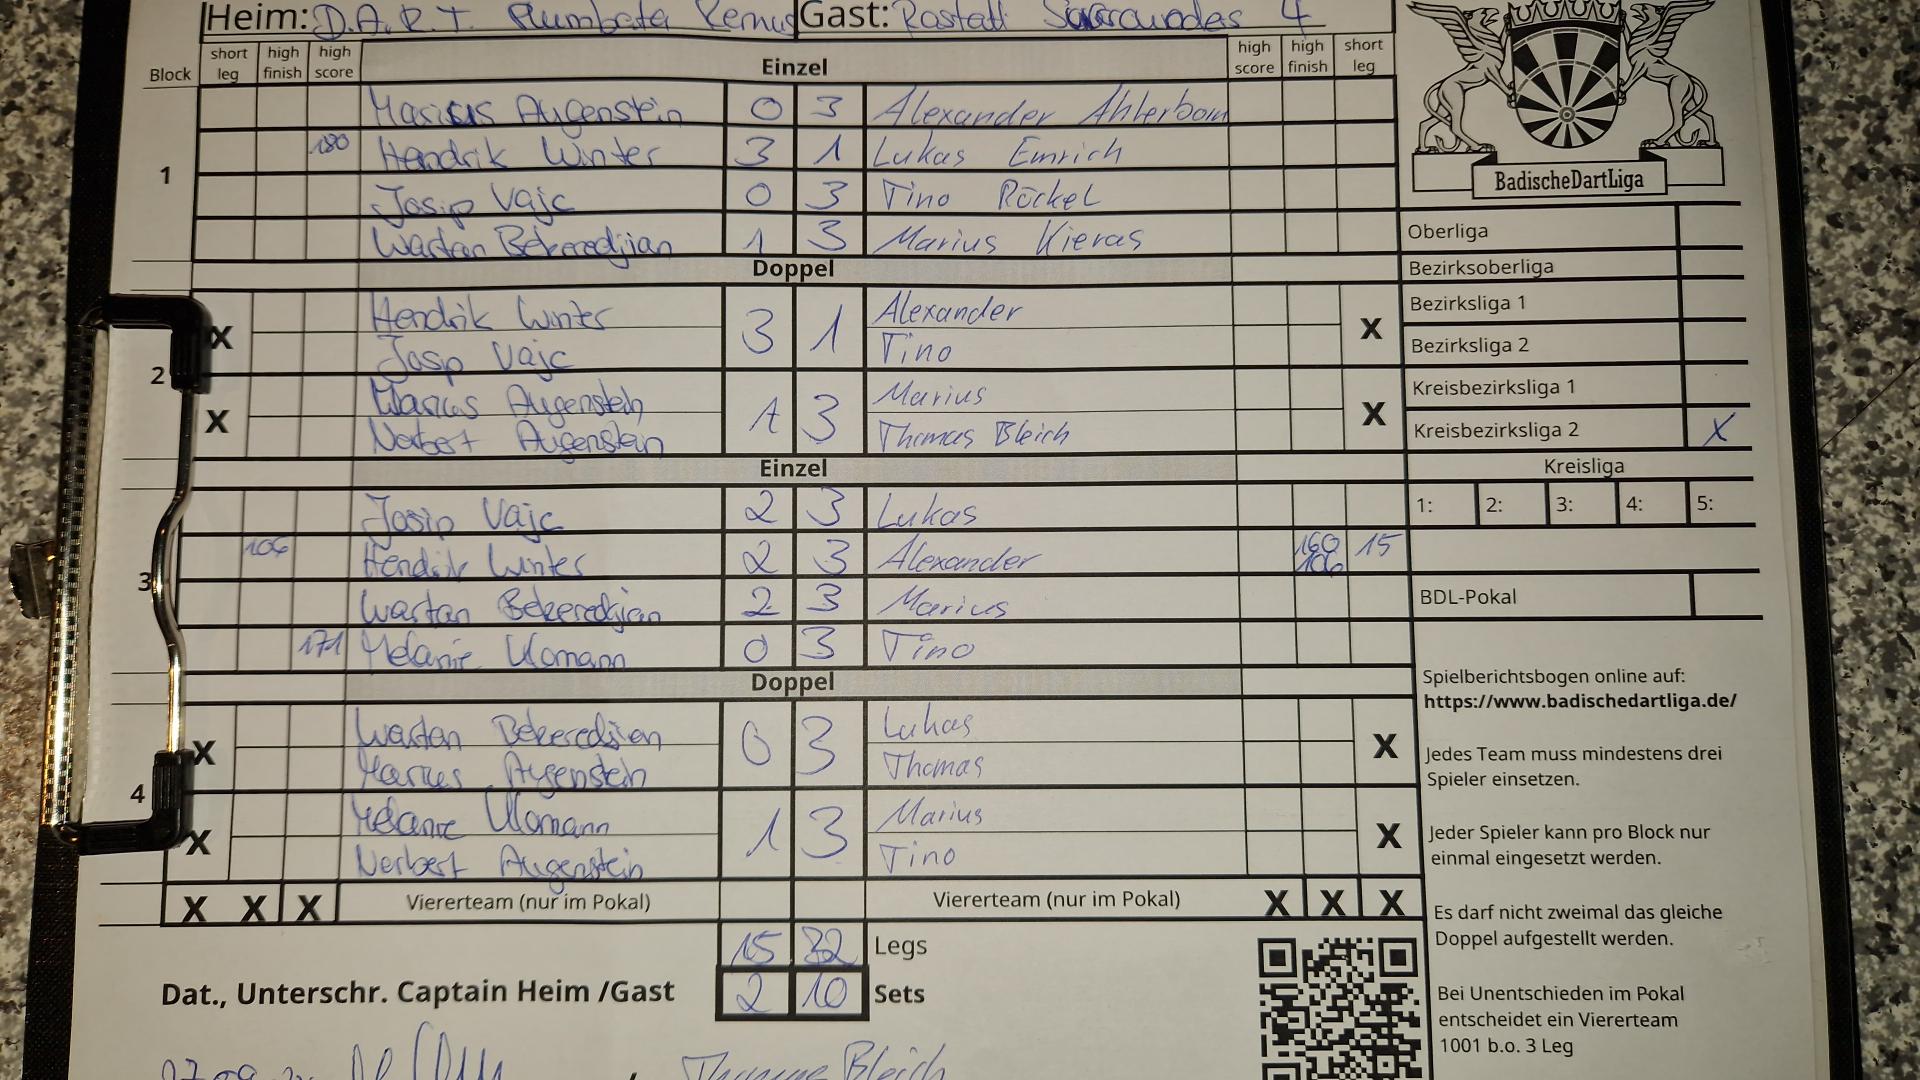 Heim: D.A.R.T. Plumbata Remus Gast: Rastatt 4
Block short leg high finish high score Einzel high score high finish short leg
1
Marius Augenstein 0 3 Alexander Ahlerbom
180 Hendrik Winter 3 1 Lukas Emrich
Josip Vajc 0 3 Tino Röckel
Wartan Bekeredjian 1 3 Marius Kieras
Doppel
2
X Hendrik Winter 3 1 Alexander X
Josip Vajc Tino
X Marius Augenstein 1 3 Marius X
Norbert Augenstein Thomas Bleich
Einzel
3
Josip Vajc 2 3 Lukas
106 Hendrik Winter 2 3 Alexander 160 106 15
Wartan Bekeredjian 2 3 Marius
171 Melanie Ulomann 0 3 Tino
Doppel
4
X Wartan Bekeredjian 0 3 Lukas X
Marius Augenstein Thomas
X Melanie Ulomann 1 3 Marius X
Norbert Augenstein Tino
X X X Viererteam (nur im Pokal) Viererteam (nur im Pokal) X X X
15 32 Legs
Dat., Unterschr. Captain Heim /Gast 2 10 Sets
/ Thomas Bleich
BadischeDartLiga
Oberliga
Bezirksoberliga
Bezirksliga 1
Bezirksliga 2
Kreisbezirksliga 1
Kreisbezirksliga 2 X
Kreisliga
1: 2: 3: 4: 5:
BDL-Pokal
Spielberichtsbogen online auf:
https://www.badischedartliga.de/
Jedes Team muss mindestens drei
Spieler einsetzen.
Jeder Spieler kann pro Block nur
einmal eingesetzt werden.
Es darf nicht zweimal das gleiche
Doppel aufgestellt werden.
Bei Unentschieden im Pokal
entscheidet ein Viererteam
1001 b.o. 3 Leg